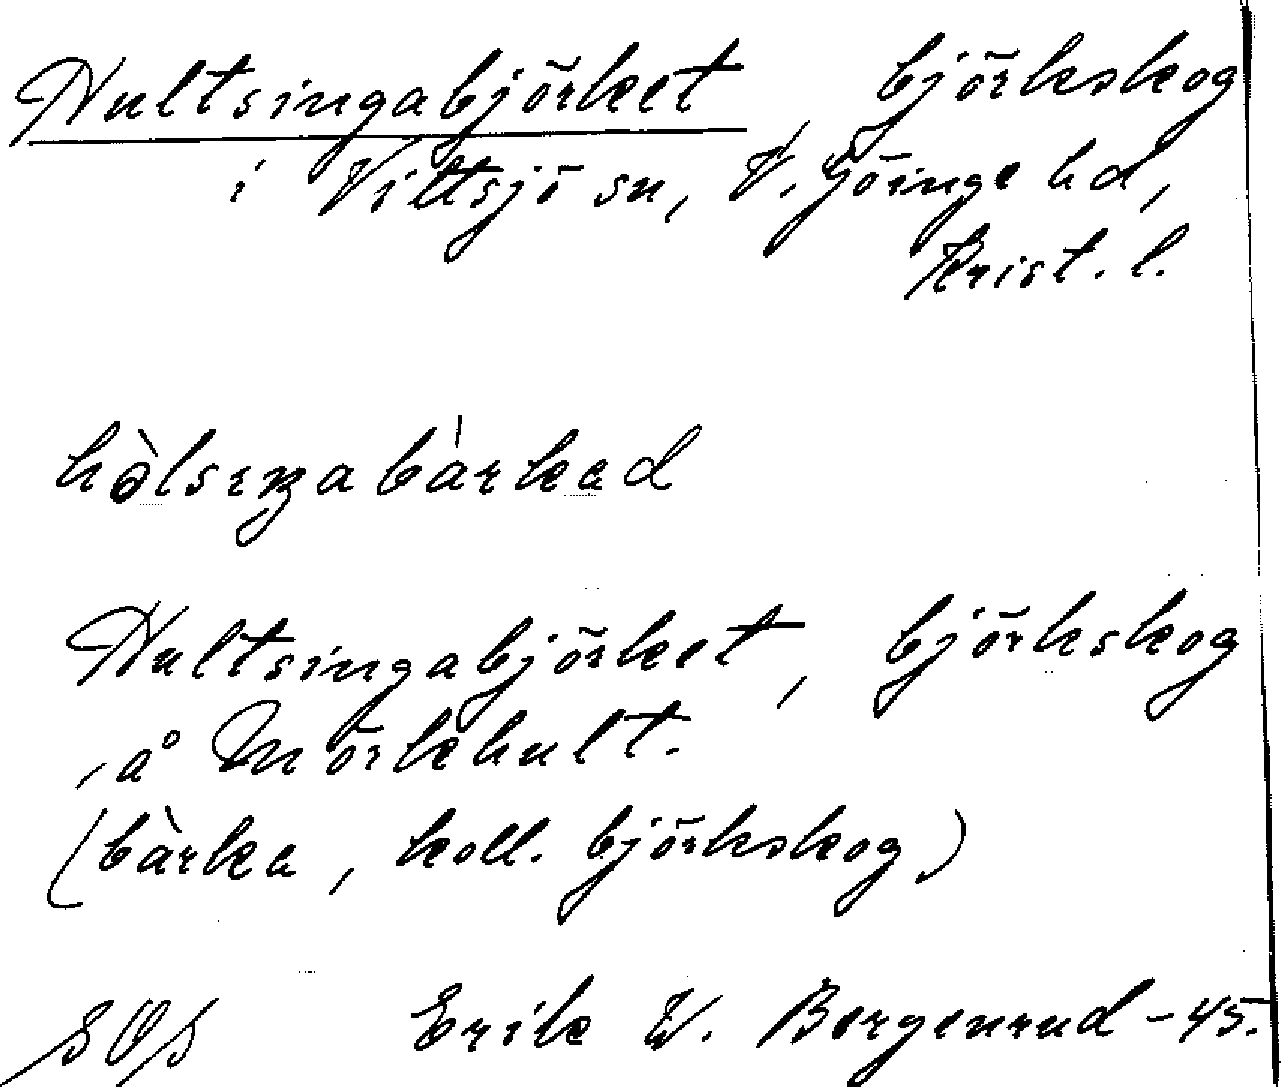 Hultsingabjörket, björkskog
i Vittsjö sn, V. Göinge hd,
Krist. l.
Hultsingabjörket, björkskog
, å Mörkhult.
(bàrka, koll. björkskog)
Erik W. Bergenrud -45.